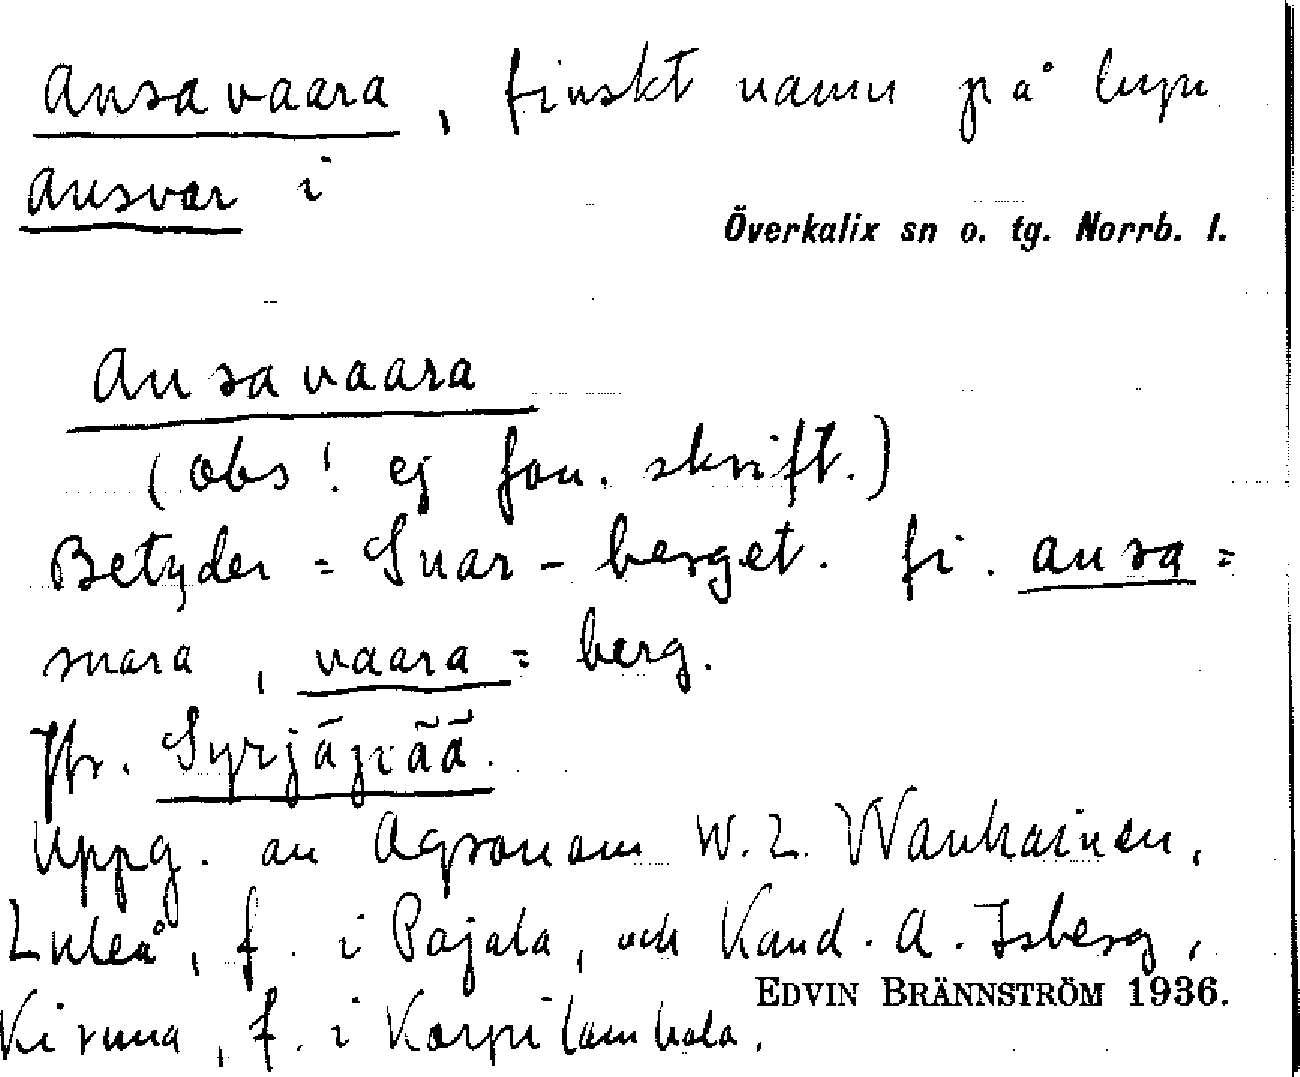 Ansavaara, finskt namn på byn
Ansvar i
Överkalix sn o. tg. Norrb. l.
Ansavaara
(obs! ej fon. skrift.)
Betyder = Snar-berget. fi. ansa =
snara, vaara = berg.
Jfr. Syrjäpää.
Uppg. av Agronom W. L. Wanhainen,
Luleå, f. i Pajala, och Kand. A. Isberg,
EDVIN BRÄNNSTRÖM 1936.
Kiruna, f. i Korpilombolo.